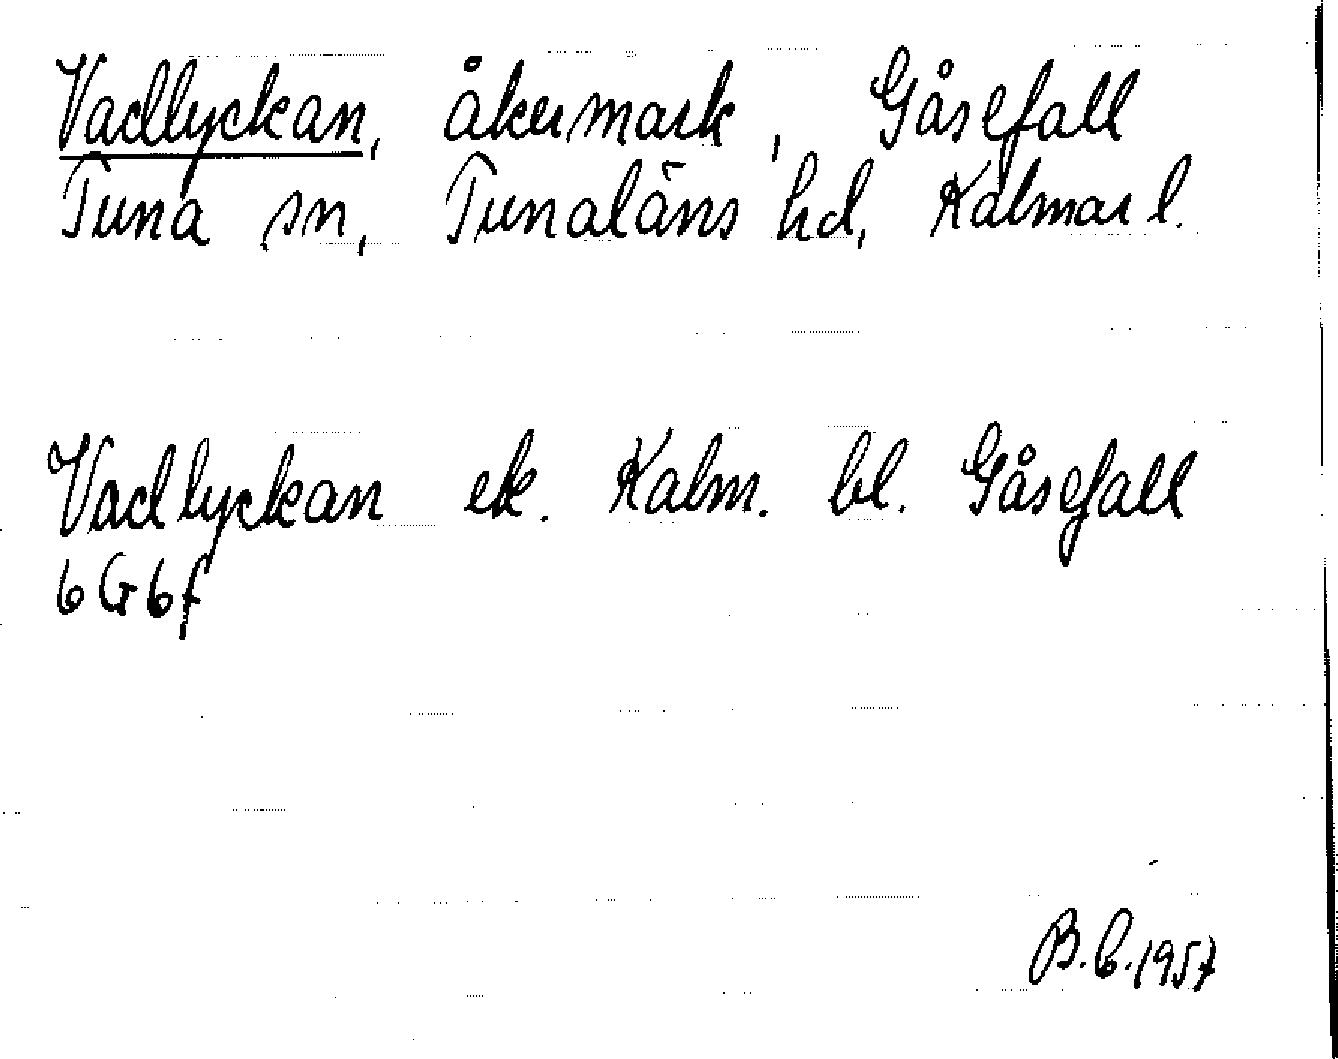 Vadlyckan, åkermark, Gåsefall
Tuna sn, Tunaläns hd, Kalmar l.
Vadlyckan ek. Kalm. bl. Gåsefall
6G6f
B.C.1957